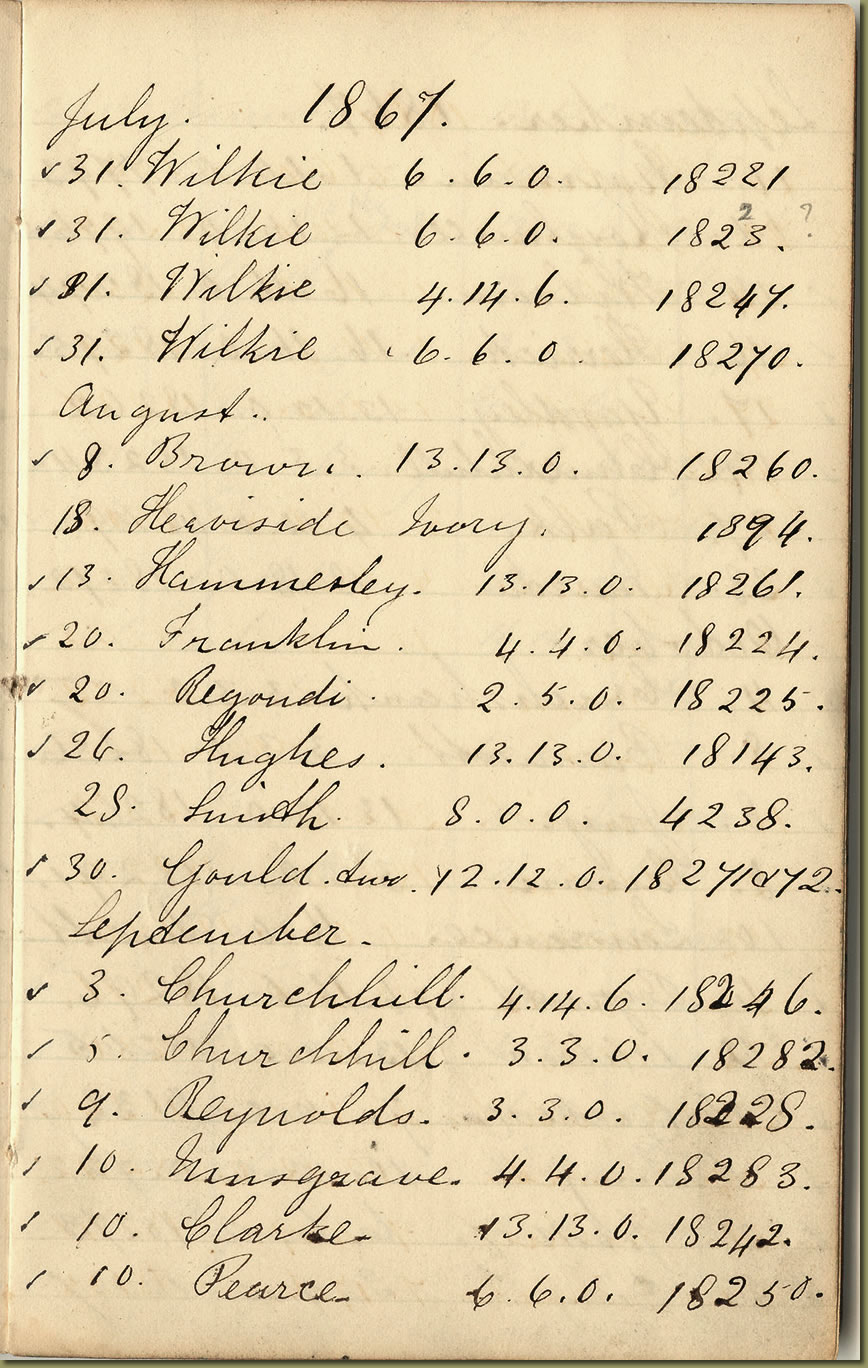 July. 1867.
✓ 31. Wilkie 6. 6. 0. 18221
✓ 31. Wilkie 6. 6. 0. 1823. 2 ?
✓ 31. Wilkie 4. 14. 6. 18247.
✓ 31. Wilkie 6. 6. 0. 18270.
August..
✓ 8. Brown. 13. 13. 0. 18260.
18. Heaviside Ivory. 1894.
✓ 13. Hammesley. 13. 13. 0. 18261.
✓ 20. Franklin. 4. 4. 0. 18224.
✓ 20. Regondi. 2. 5. 0. 18225.
✓ 26. Hughes. 13. 13. 0. 18143.
28. Smith. 8. 0. 0. 4238.
✓ 30. Gould. two. 12. 12. 0. 18271&72.
September.
✓ 3. Churchhill. 4. 14. 6. 18246.
✓ 5. Churchhill. 3. 3. 0. 18282.
✓ 9. Reynolds. 3. 3. 0. 18228.
✓ 10. Musgrave. 4. 4. 0. 18283.
✓ 10. Clarke 13. 13. 0. 18242.
✓ 10. Pearce 6. 6. 0. 18250.